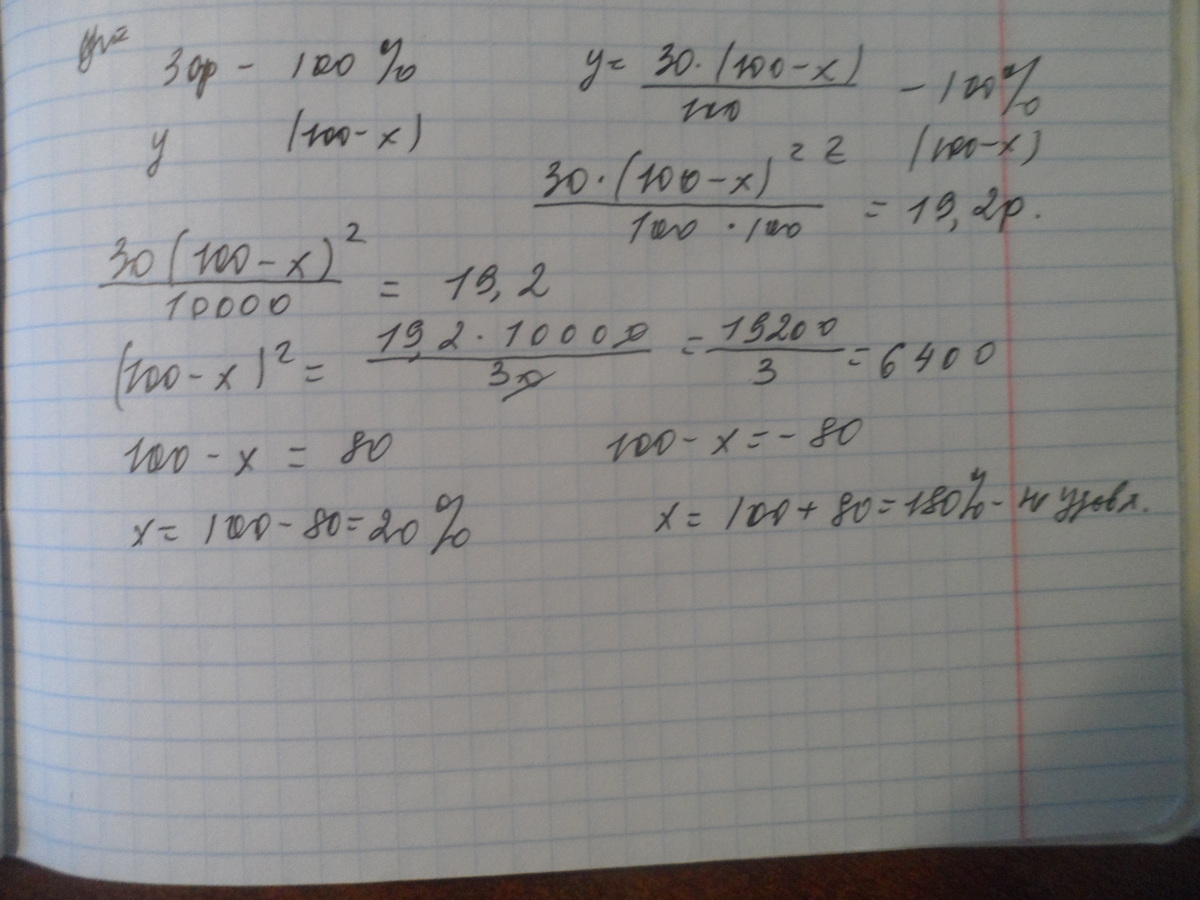 30р - 100%
y (100-x)
y= 30·(100-x)/100 - 100%
z (100-x)
30·(100-x)²/100·100 = 19,2р.
30(100-x)²/10000 = 19,2
(100-x)² = 19,2·10000/30 = 19200/3 = 6400
100-x = 80
100-x = -80
x = 100-80=20%
x = 100+80=180%- не удовл.